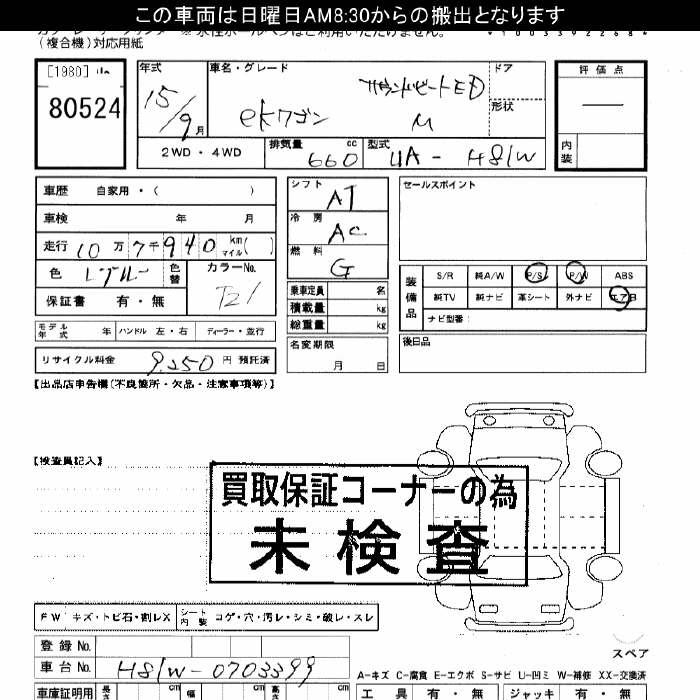 この車両は日曜日AM8:30からの搬出となります
(複合機)対応用紙
[1980]
80524
年式 車名・グレード ドア 評価点
15/9月
サウンドビートED
ekワゴン M
形状
内装
2WD・4WD 排気量 660 cc 型式 UA-H81W
車歴 自家用・( )
車検 年 月
走行 10万7千940 km マイル( )
色 レブルー 色替 カラーNo. T21
保証書 有・無
モデル年式 年 ハンドル 左・右 ディーラー・並行
リサイクル料金 9,250 円 預託済
シフト AT
冷房 AC
燃料 G
乗車定員 名
積載量 kg
総重量 kg
名変期限
月 日
セールスポイント
装備品
S/R 純A/W P/S P/W ABS
純TV 純ナビ 革シート 外ナビ エアB
ナビ型番:
後日品
【出品店申告欄(不良箇所・欠品・注意事項等)】
【検査員記入】
買取保証コーナーの為
未検査
FW キズ・トビ石・割レX シート内装 コゲ・穴・汚レ・シミ・破レ・スレ
登録No.
車台No. H81W-0703399
スペア
A-キズ C-腐食 E-エクボ S-サビ U-凹ミ W-補修 XX-交換済
車庫証明用 長さ cm 幅 cm cm
工具 有・無 ジャッキ 有・無